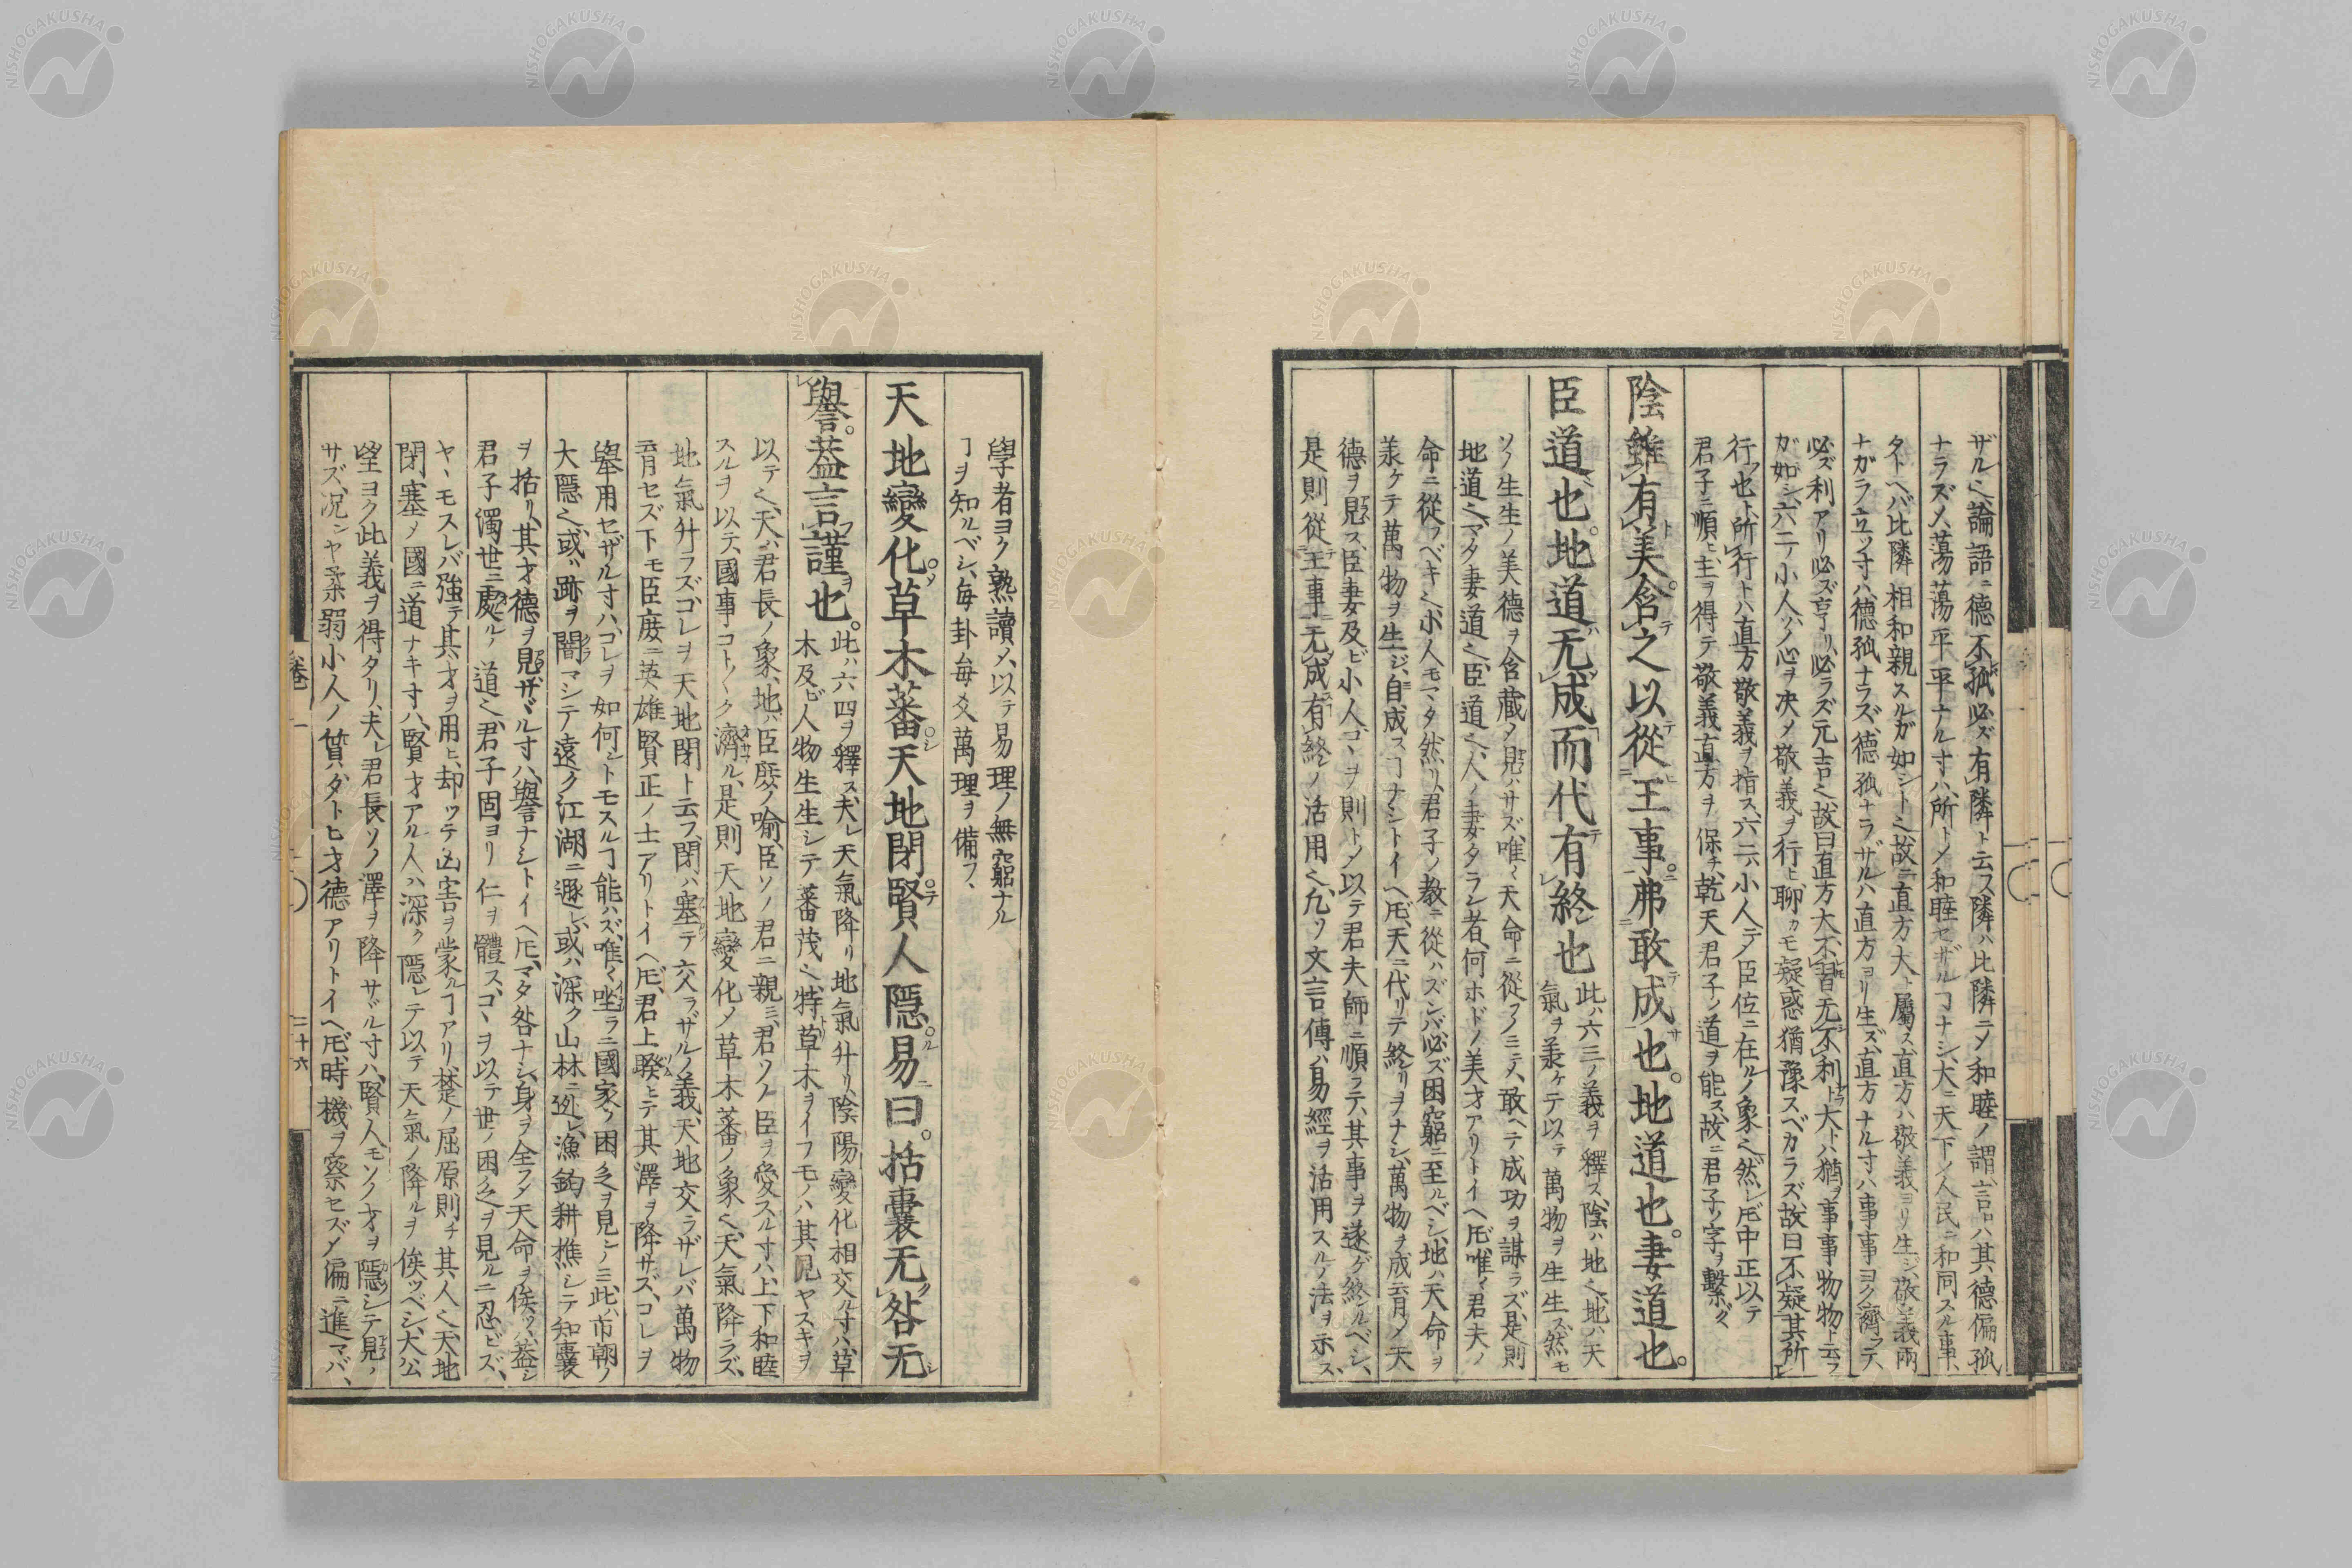 ザル也、論語ニ德不孤必ズ有隣ト云フ、隣ハ比隣ニメ和睦ノ謂、言ハ其德偏孤
ナラズメ、蕩蕩平平ナル寸ハ、所トメ和睦セザルヿナシ、大ニ天下ノ人民ニ和同スル事、
タトヘバ比隣相和親スルガ如シト也、故ニ直方大ニ屬ス、直方ハ敬義ヨリ生ジ、敬義兩
ナガラ立ツ寸ハ、德孤ナラズ、德孤ナラザルハ直方ヨリ生ズ、直方ナル寸ハ事事ヨク濟ラテ、
必ズ利アリ必ズ亨リ、必ラズ元吉也、故曰直方大不習无不利ト、大トハ猶ヲ事事物物ト云フ
ガ如シ、六二ノ小人ハ心ヲ决メ敬義ヲ行ヒ、聊カモ疑惑猶豫スベカラズ、故曰不疑其所
行也ト、所行トハ直方敬義ヲ指ス、六二ハ小人テノ臣位ニ在ルノ象也、然レ𪜈中正以テ
君子ニ順ヒ、主ヲ得テ敬義直方ヲ保チ、乾天君子ノ道ヲ能ス、故ニ君子ノ字ヲ繫グ
陰雖有美含之以從王事弗敢成也。地道也。妻道也。
臣道也。地道无成而代有終也
此ハ六三ノ義ヲ釋ス、陰ハ地也、地ハ天
氣ヲ羕ケテ以テ萬物ヲ生生ス、然モ
ソノ生生ノ美德ヲ含藏メ見ハサズ、唯々天命ニ從フノミニテ、敢ヘテ成功ヲ謀ラズ、是則
地道也、マタ妻道也、臣道也、人ノ妻タラン者、何ホドノ美才アリトイヘ𪜈、唯々君夫ノ
命ニ從フベキ也、小人モマタ然リ、君子ノ敎ニ從ハズンバ必ズ困窮ニ至ルベシ、地ハ天命ヲ
羕ケテ萬物ヲ生ジ、自成スヿナシトイヘ𪜈、天ニ代リテ終リヲナシ、萬物ヲ成育メ天
德ヲ見ス、臣妻及ビ小人、コヽヲ則トメ以テ君夫師ニ順ラテ、其事ヲ遂ゲ終ルベシ、
是則從王事无成有終ノ活用也、凡ソ文言傳ハ易經ヲ活用スルノ法ヲ示ス、
學者ヨク熟讀メ、以テ易理ノ無窮ナル
ヿヲ知ルベシ、每卦每爻萬理ヲ備フ、
天地變化。草木蕃天地閉賢人隠易曰。括囊无咎无
譽。葢言謹也。
此ハ六四ヲ釋ス、夫レ天氣降リ地氣升リ、陰陽變化相交ル寸ハ、草
木及ビ人物生生シテ蕃茂也、特草木ヲイフモノハ其見ヤスキヲ
以テ也、天ハ君長ノ象、地ハ臣庶ノ喩、臣ソノ君ニ親ミ、君ソノ臣ヲ愛スル寸ハ、上下和睦
スルヲ以テ、國事コト〴〵ク濟ル、是則天地變化メ草木蕃ノ象也、天氣降ラズ、
地氣升ラズ、コレヲ天地閉ト云フ、閉ハ塞テ交ラザルノ義、天地交ラザレバ萬物
育セズ、下モ臣庶ニ英雄賢正ノ士アリトイヘ𪜈、君上睽ヒテ其澤ヲ降サズ、コレヲ
舉用セザル寸ハ、コレヲ如何ントモスルヿ能ハズ、唯々坐ラニ國家ノ困乏ヲ見ンノミ、此ハ市朝ノ
大隱也、或ハ跡ヲ闇マシテ遠ク江湖ニ遯レ、或ハ深ク山林ニ迯レ、漁釣耕樵シテ知囊
ヲ括リ、其才德ヲ見サザル寸ハ、譽ナシトイヘ𪜈、マタ咎ナシ、身ヲ全フメ天命ヲ俟ツ、葢シ
君子濁世ニ處ルノ道也、君子固ヨリ仁ヲ體ス、コヽヲ以テ世ノ困乏ヲ見ルニ忍ビズ、
ヤヽモスレバ強テ其才ヲ用ヒ、却ッテ凶害ヲ蒙ルヿアリ、楚ノ屈原則チ其人也、天地
閉塞ノ國ニ道ナキ寸ハ、賢才アル人ハ深ク隱レテ以テ天氣ノ降ルヲ俟ツベシ、大公
望ヨク此義ヲ得タリ、夫レ君長ソノ澤ヲ降サザル寸ハ、賢人モソノ才ヲ隱シテ見ハ
サズ、况ンヤ柔弱小人ノ質、タトヒ才德アリトイヘ𪜈、時機ヲ察セズメ偏ニ進マバ、
卷一
二十六
NISHOGAKUSHA